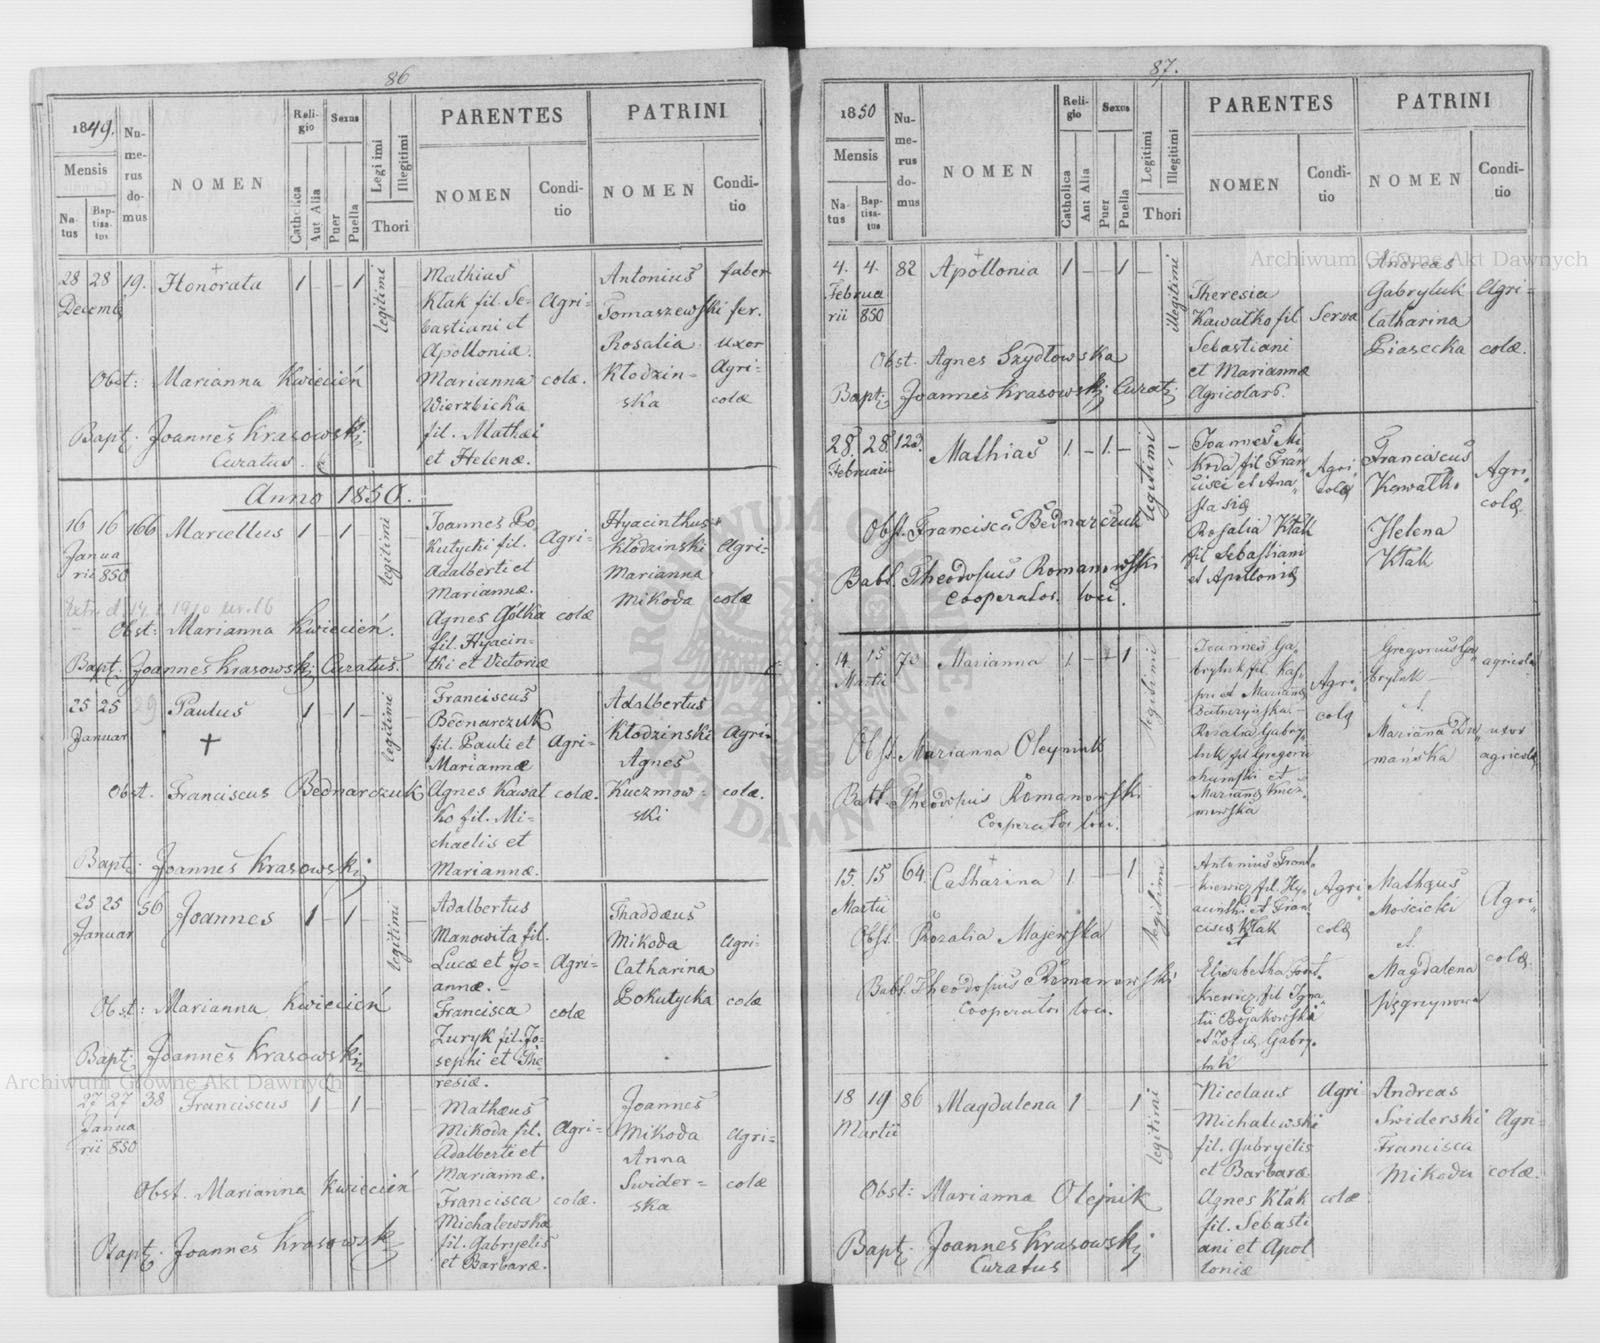 86
1849.
Mensis
Na-
tus
Bap-
tisa-
tus
Nu-
me-
rus
do-
mus
NOMEN
Reli-
gio
Catholica
Aut Alia
Sexus
Puer
Puella
Legitimi
Illegitimi
Thori
PARENTES
NOMEN
Condi-
tio
PATRINI
NOMEN
Condi-
tio
28 28 19. Honorata 1 — — 1 legitimi
Decemb
Mathias
Kłak fil. Se-
bastiani et
Apolloniæ.
Marianna
Wierzbicka
fil. Mathæi
et Helenæ.
Agri-
colæ.
Antonius
Tomaszewski
Rosalia
Kłodzin-
ska
faber
fer.
uxor
Agri-
colæ
Obst: Marianna Kwiecień
Bapt: Joannes Krasowski
Curatus.
Anno 1850.
16 16 166 Marcellus 1 — 1 — legitimi
Janua
rii 850
Joannes Po
kutycki fil.
Adalberti et
Mariannæ.
Agnes Gólka
fil. Hyacin-
thi et Victoriæ
Agri-
colæ
Hyacinthus
Kłodzinski
Marianna
Mikoda
Agri-
colæ
Obst: Marianna Kwiecień.
Bapt. Joannes Krasowski Curatus.
25 25 29 Paulus 1 — 1 — legitimi
Januar
Franciscus
Bednarczuk
fil. Pauli et
Mariannæ
Agnes Kawał
ko fil. Mi-
chaelis et
Mariannæ.
Agri-
colæ.
Adalbertus
Kłodzinski
Agnes
Kuczmow-
ski
Agri-
colæ.
Obst. Franciscus Bednarczuk
Bapt: Joannes Krasowski
25 25 56 Joannes 1 — 1 — legitimi
Januar
Adalbertus
Manowita fil.
Lucæ et Jo-
annæ.
Francisca
Zuryk fil. Jo-
sephi et The
resiæ.
Agri-
colæ
Thaddæus
Mikoda
Catharina
Pokutycka
Agri-
colæ
Obst: Marianna Kwiecień
Bapt: Joannes Krasowski
27 27 38 Franciscus 1 — 1 —
Janua
rii 850
Mathæus
Mikoda fil.
Adalberti et
Mariannæ.
Francisca
Michalewska
fil. Gabryelis
et Barbaræ.
Agri-
colæ.
Joannes
Mikoda
Anna
Swider-
ska
Agri-
colæ
Obst. Marianna Kwiecień
Bapt: Joannes Krasowski
87.
1850
Mensis
Na-
tus
Bap-
tisa-
tus
Nu-
me-
rus
do-
mus
NOMEN
Reli-
gio
Catholica
Aut Alia
Sexus
Puer
Puella
Legitimi
Illegitimi
Thori
PARENTES
NOMEN
Condi-
tio
PATRINI
NOMEN
Condi-
tio
4. 4. 82 Apollonia 1 — — 1 — illegitimi
Februa
rii 850
Theresia
Kawałko fil
Sebastiani
et Mariannæ
Agricolarũ.
Serva
Andreas
Gabryluk
Catharina
Piasecka
Agri-
colæ.
Obst. Agnes Szydłowska
Bapt: Joannes Krasowski Curat:
28. 28. 123. Mathias 1. — 1. — legitimi
Februarii
Joannes Mi
koda fil Fran
cisci et Ana
stasiæ
Rosalia Kłak
fil Sebastiani
et Apolloniæ
Agri
colæ
Franciscus
Kawałko
Helena
Kłak
Agri-
colæ
Obst. Francisca Bednarczuk
Babt. Theodosius Romanowski
Cooperator loci.
14 15 70 Marianna 1 — 1 legitimi
Martii
Joannes Ga-
bryluk fil. Kas-
pri et Mariannæ
Rosalia Gabry-
luk fil Gregorii
Agri-
colæ
Gregorius Ga
bryluk
et
Marianna Du
mańska
agricola
uxor
agricolæ
Obst. Marianna Oleyniuk
Babt. Theodosius Romanowski
Cooperator loci.
15. 15 64 Catharina 1. — — 1 — legitimi
Martii
Antonius Front-
kiewicz fil. Hy-
acinthi et Fran
ciscæ Kłak
et
Elisabetha Front-
kiewicz fil Igna
tii Bojakowski
et Zofiæ Gabry-
luk
Agri
colæ
Mathæus
Mościcki
et
Magdalena
Węgrzynowa
Agri
colæ
Obst. Rozalia Majewska
Babt. Theodosius Romanowski
Cooperator loci.
18 19 86 Magdalena 1 — — 1 legitimi
Martii
Nicolaus
Michalewski
fil. Gabryelis
et Barbaræ
Agnes Kłak
fil. Sebasti
ani et Apol
loniæ
Agri
colæ
Andreas
Swiderski
Francisca
Mikoda
Agri-
colæ.
Obst: Marianna Olejnik
Bapt: Joannes Krasowski
Curatus
Archiwum Główne Akt Dawnych
Archiwum Główne Akt Dawnych
ARCHIWUM GŁÓWNE AKT DAWNYCH